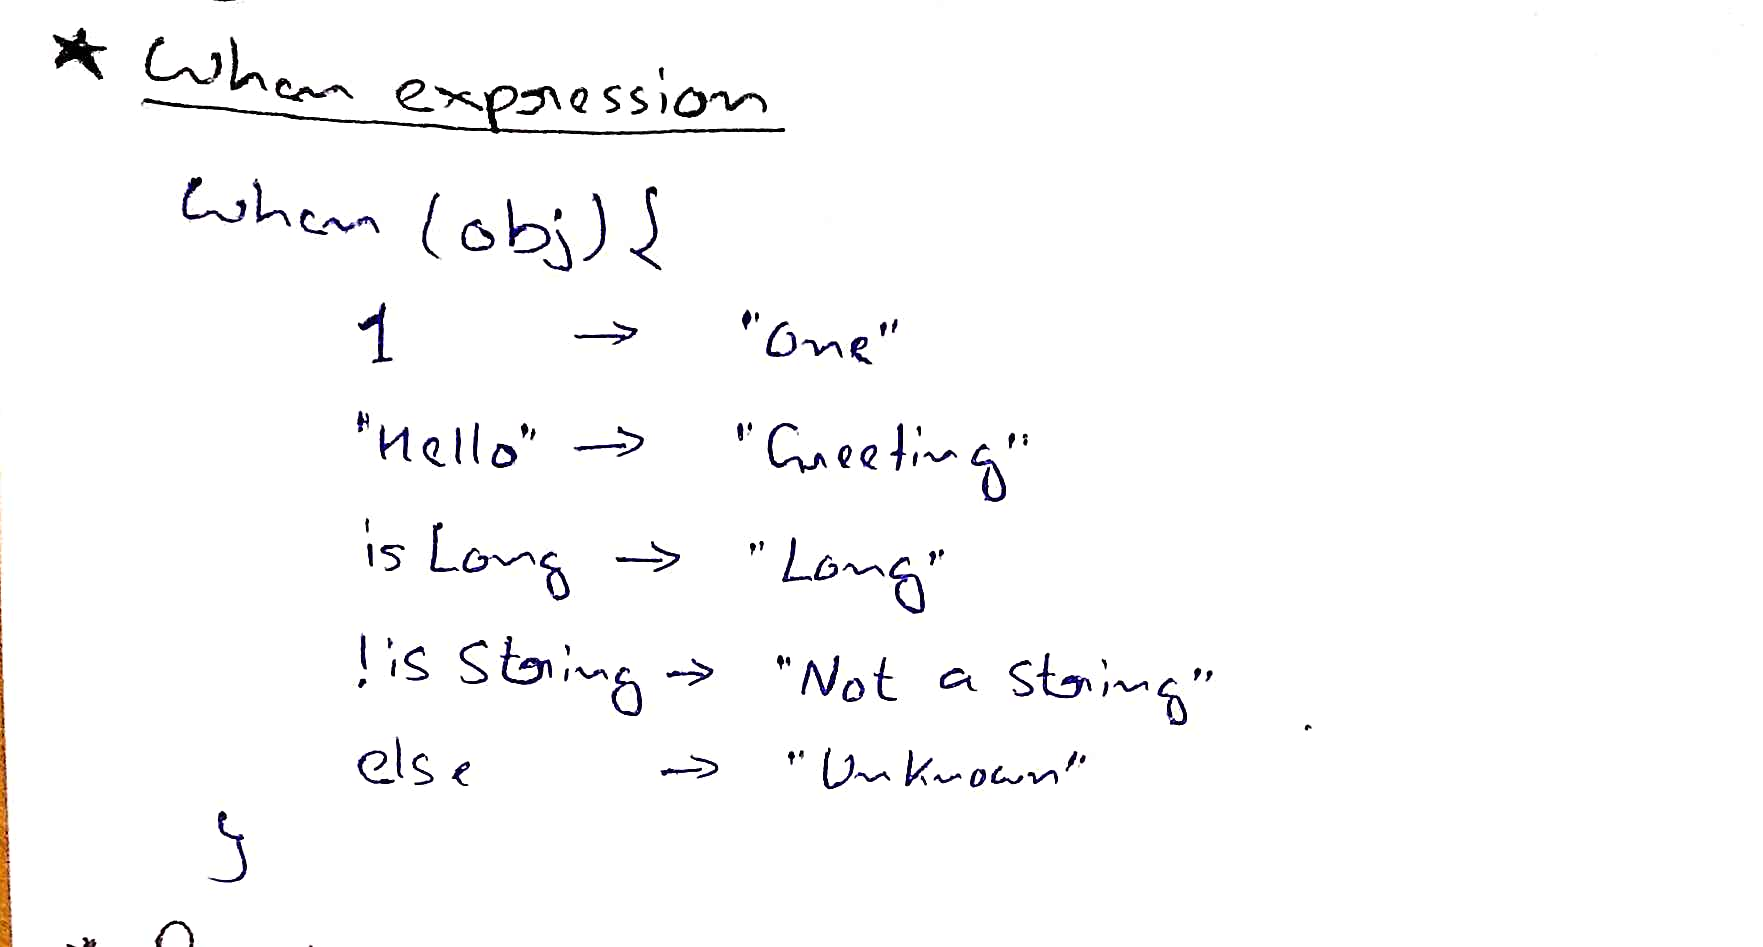 ★ When expression
when (obj) {
1 → "One"
"Hello" → "Greeting"
is Long → "Long"
!is String → "Not a string"
else → "Unknown"
}